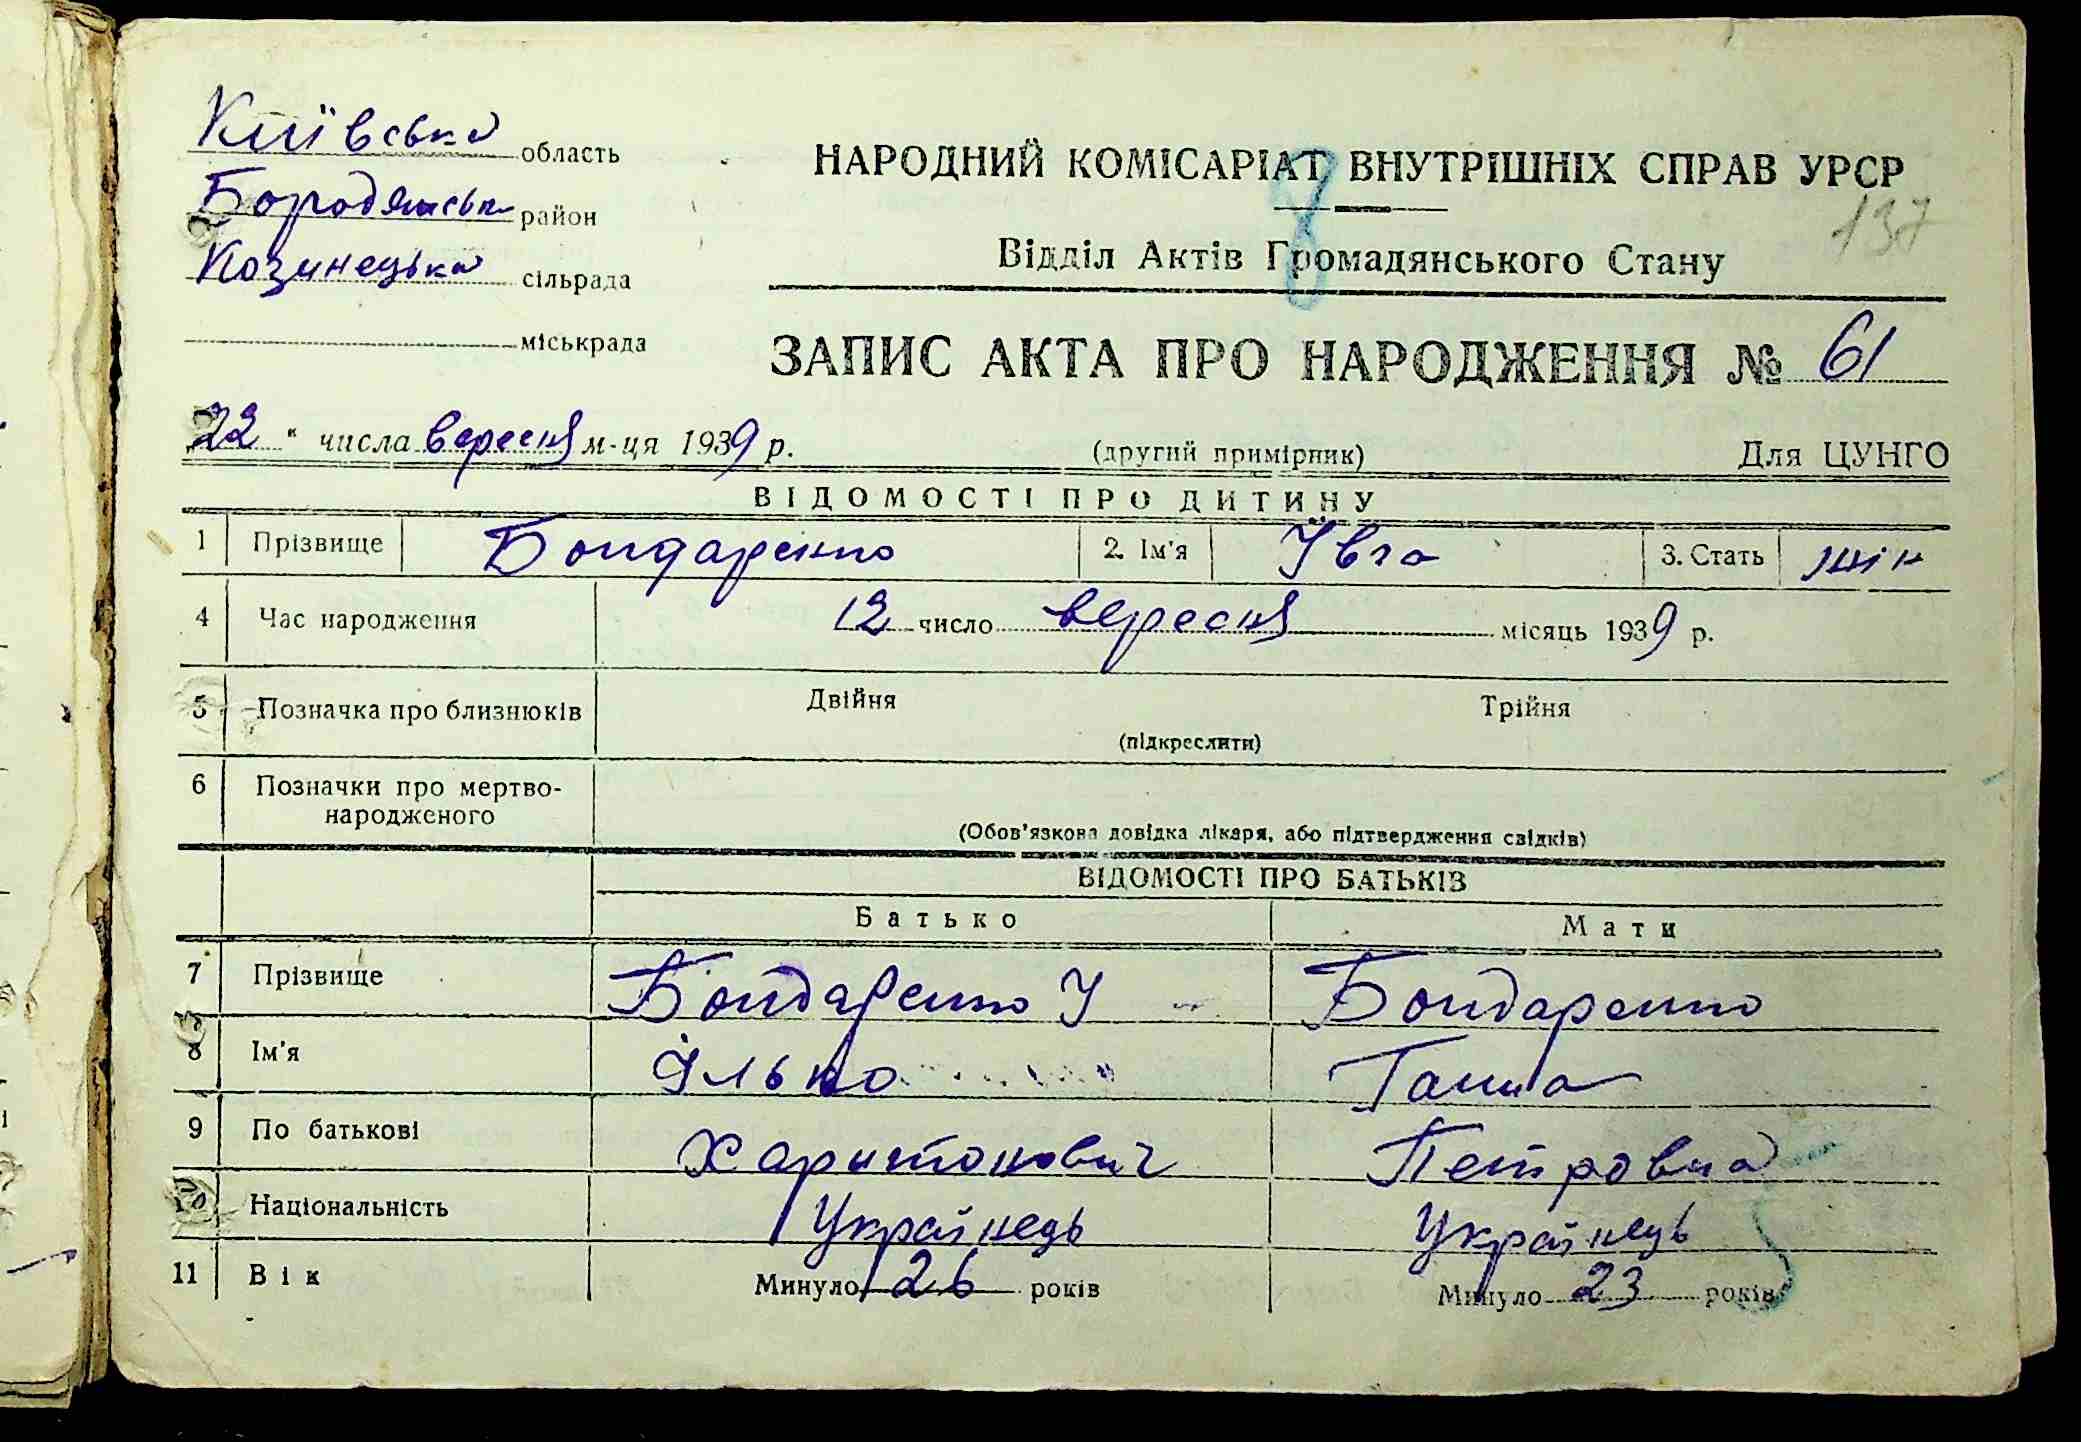 Київська область
Бородянськ район
Козинецька сільрада
міськрада
НАРОДНИЙ КОМІСАРІАТ ВНУТРІШНІХ СПРАВ УРСР
8
137
Відділ Актів Громадянського Стану
ЗАПИС АКТА ПРО НАРОДЖЕННЯ № 61
"22" числа вересня м-ця 1939 р. (другий примірник) Для ЦУНГО
ВІДОМОСТІ ПРО ДИТИНУ
1 Прізвище Бондаренко 2. Ім'я Ївга 3. Стать жін
4 Час народження 12 число вересня місяць 1939 р.
5 Позначка про близнюків Двійня Трійня
(підкреслити)
6 Позначки про мертво-
народженого
(Обов'язкова довідка лікаря, або підтвердження свідків)
ВІДОМОСТІ ПРО БАТЬКІВ
Батько Мати
7 Прізвище Бондаренко І Бондаренко
8 Ім'я Ілько Ганна
9 По батькові Харитонович Петровна
10 Національність Українець Українець
11 Вік Минуло 26 років Минуло 23 років